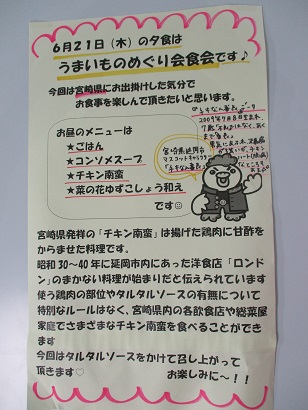 ６月２１日（木）の夕食は
うまいものめぐり会食会です♪
今回は宮崎県にお出掛けした気分で
お食事を楽しんで頂きたいと思います。
お昼のメニューは
★ごはん
★コンソメスープ
★チキン南蛮
★菜の花ゆずこしょう和え
です☺
2009年9月8日生まれ
宮崎県延岡市
マスコットキャラクター
「チキなん番長」
宮崎県発祥の「チキン南蛮」は揚げた鶏肉に甘酢を
からませた料理です。
昭和30～40年に延岡市内にあった洋食店「ロンド
ン」のまかない料理が始まりだと伝えられています
使う鶏肉の部位やタルタルソースの有無について
特別なルールはなく、宮崎県内の各飲食店や総菜屋
家庭でさまざまなチキン南蛮を食べることができ
ます
今回はタルタルソースをかけて召し上がって
頂きます♡
お楽しみに～！！